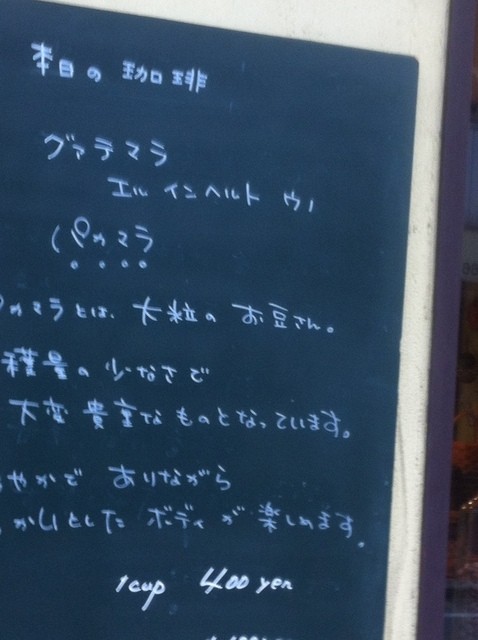 本日の珈琲
グァテマラ
エル インヘルト ウノ
(パカマラ
カマラとは、大粒のお豆さん。
穫量の少なさで
大変貴重なものとなっています。
やかでありながら
かりとしたボディが楽しめます。
1cup 400 yen